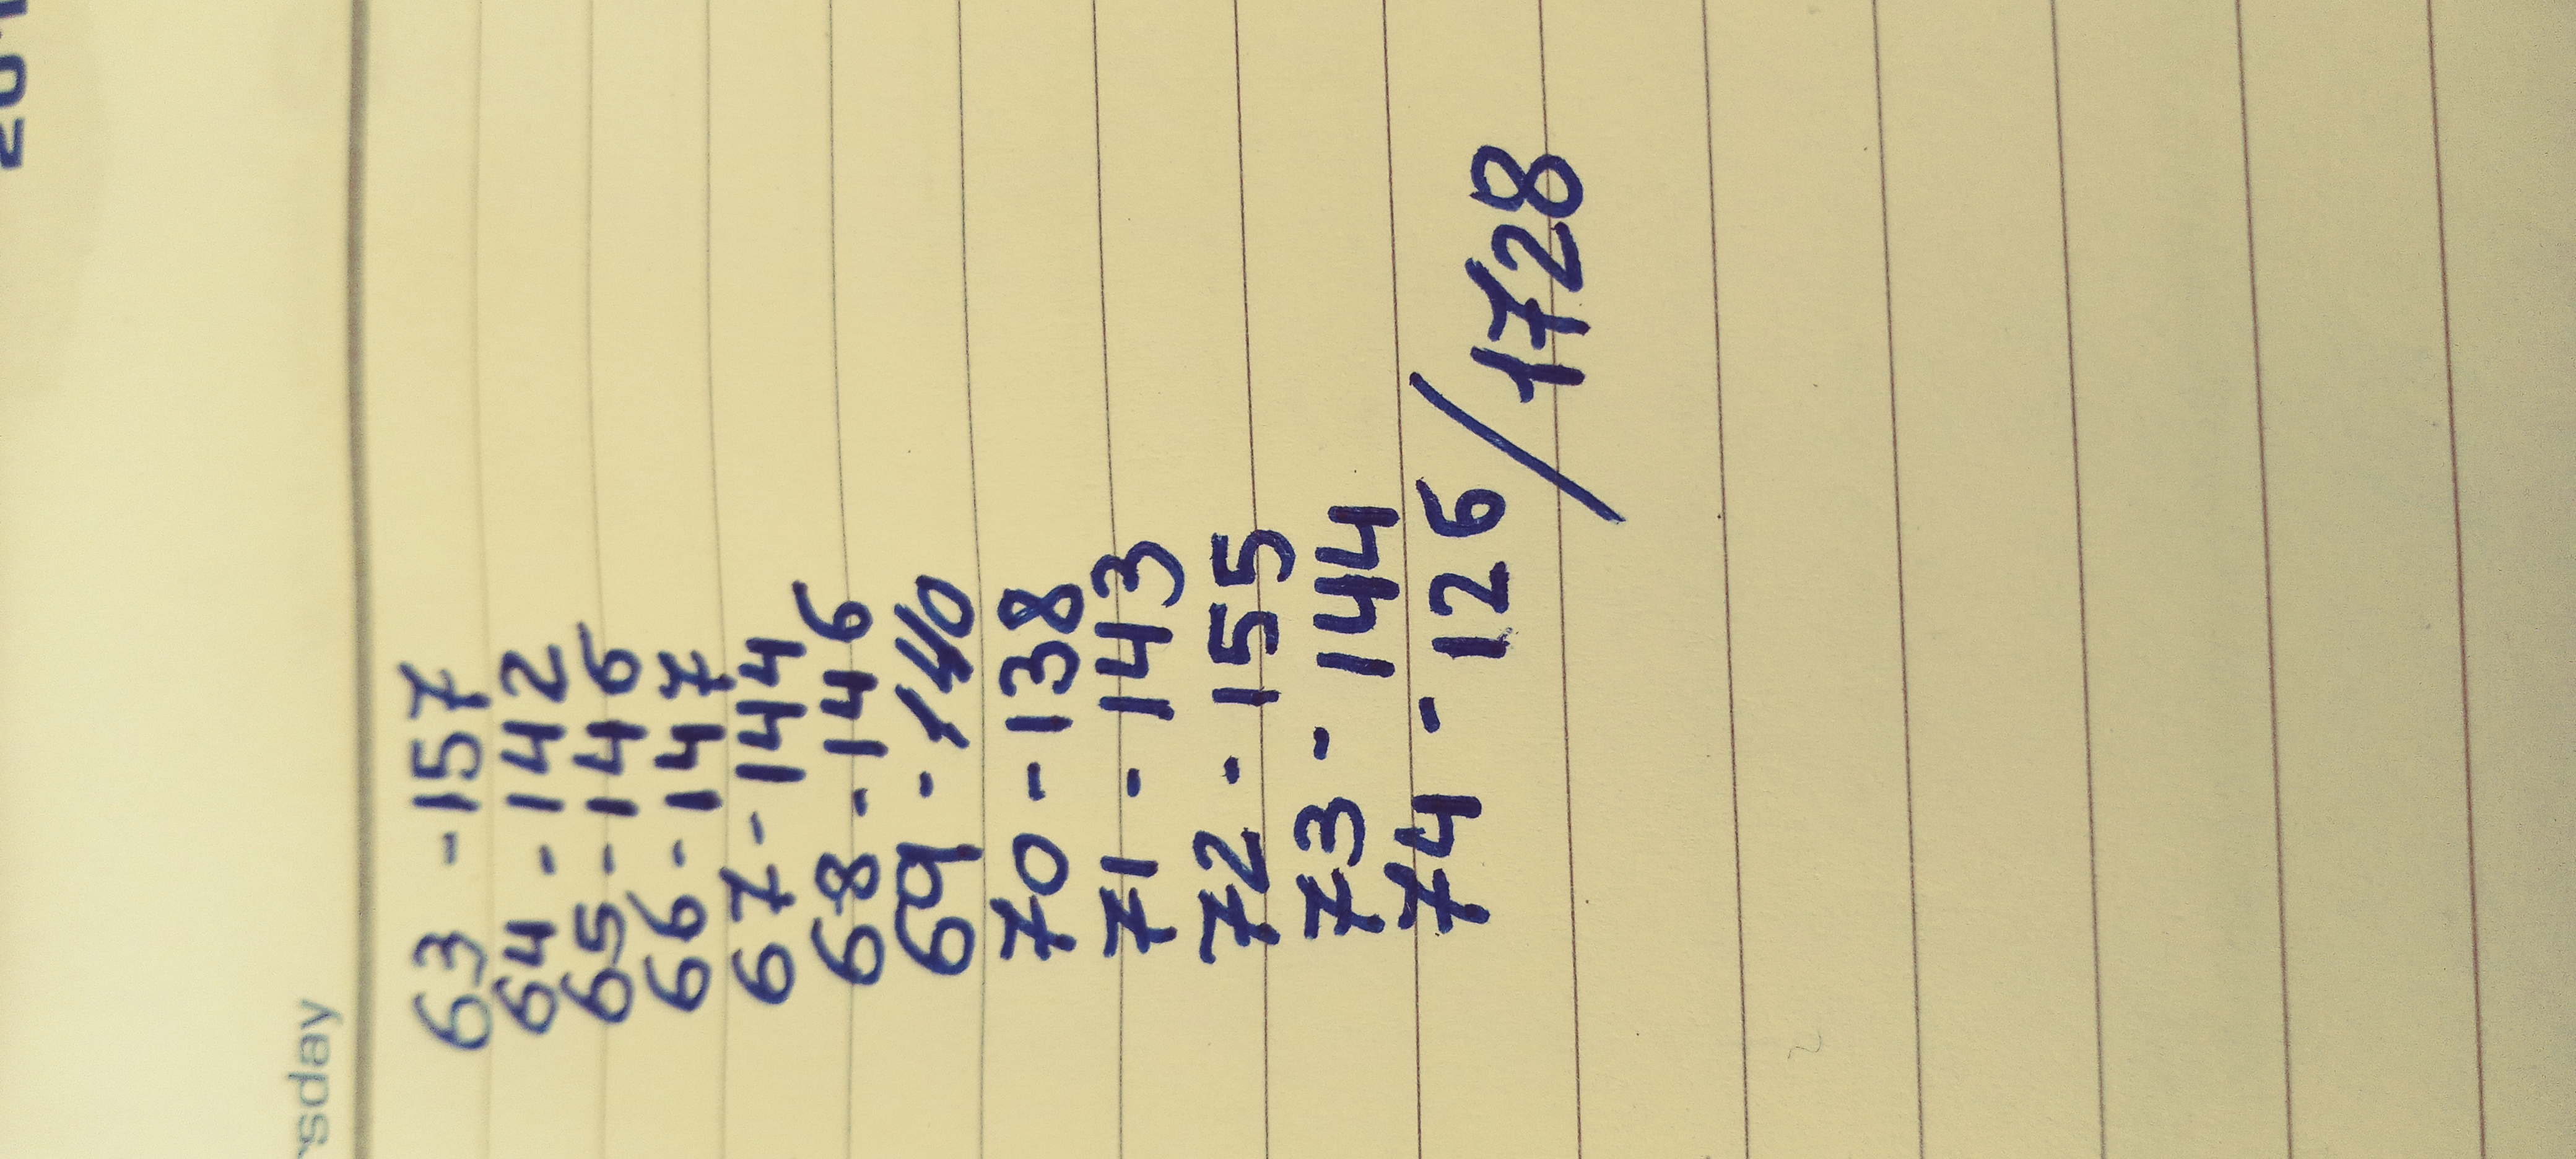 rsday
63 - 157
64 - 142
65 - 146
66 - 147
67 - 144
68 - 146
69 - 140
70 - 138
71 - 143
72 - 155
73 - 144
74 - 126 / 1728